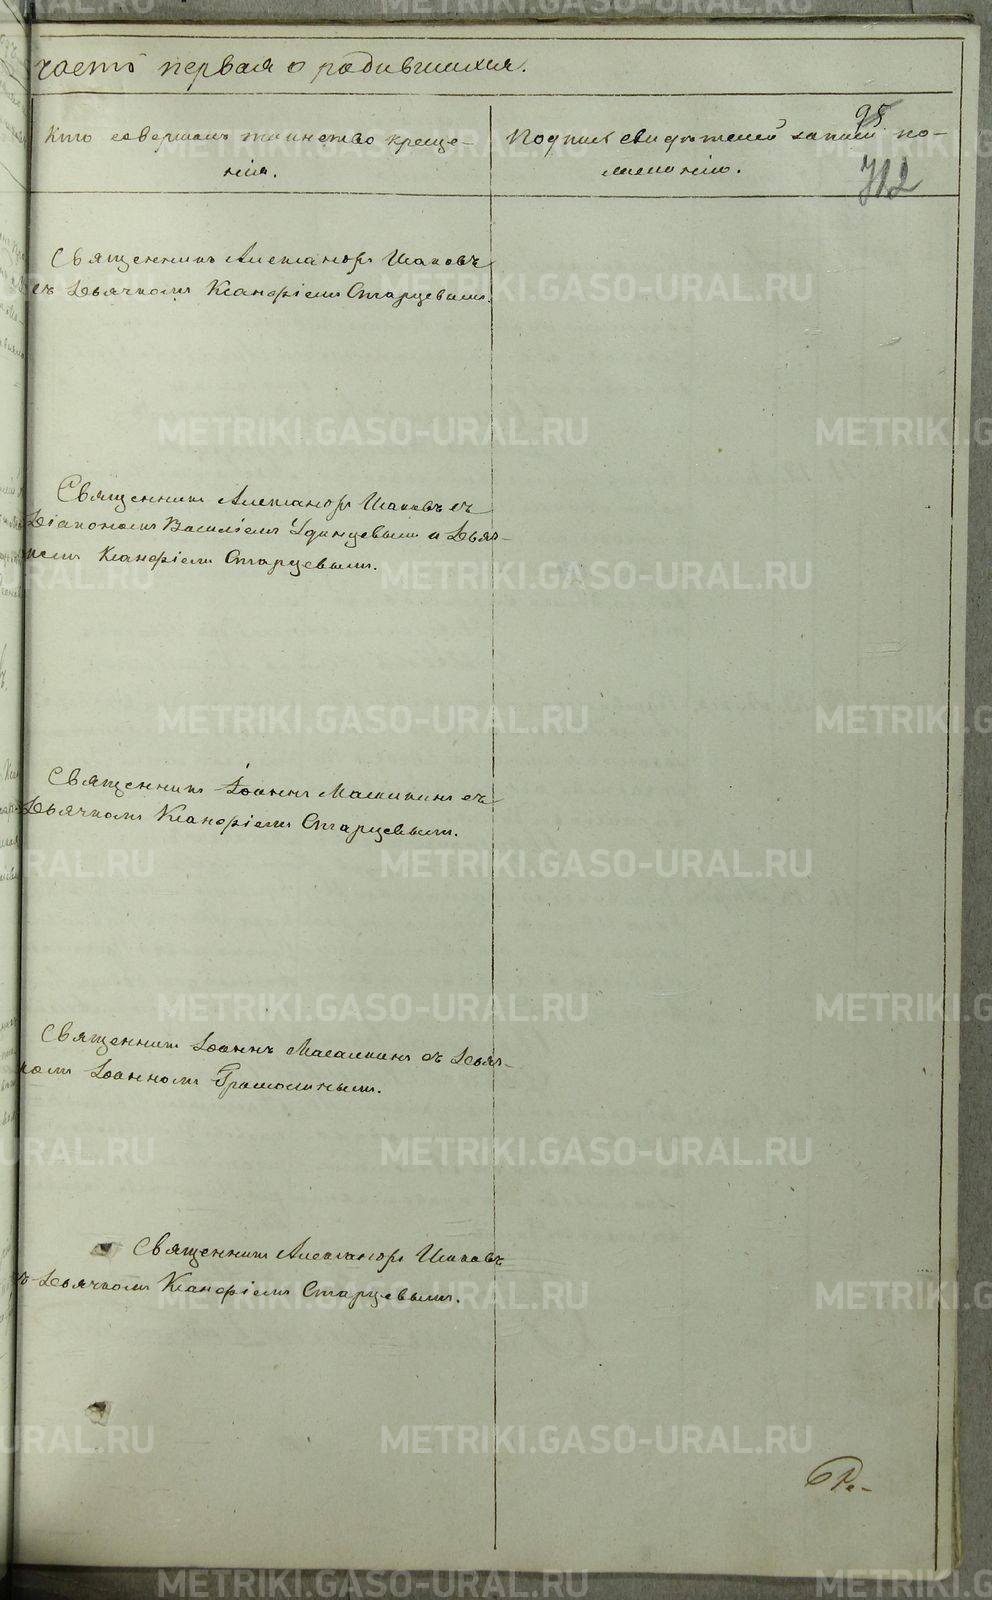 часть первая о родившихся.
95
Кто совершалъ таинство креще-
нія.
Подпись свидѣтелей записи по
желанію.
712
Священникъ Александръ Шаховъ
съ Дьячкомъ Ксанфіемъ Старцевымъ.
Священникъ Александръ Шаховъ съ
Діакономъ Василіемъ Удинцевымъ и Дьяч-
комъ Ксанфіемъ Старцевымъ.
Священникъ Іоаннъ съ
Дьячкомъ Ксанфіемъ Старцевымъ.
Священникъ Іоаннъ съ Дьяч-
комъ Іоанномъ
Священникъ Александръ Шаховъ
съ Дьячкомъ Ксанфіемъ Старцевымъ.
METRIKI.GASO-URAL.RU